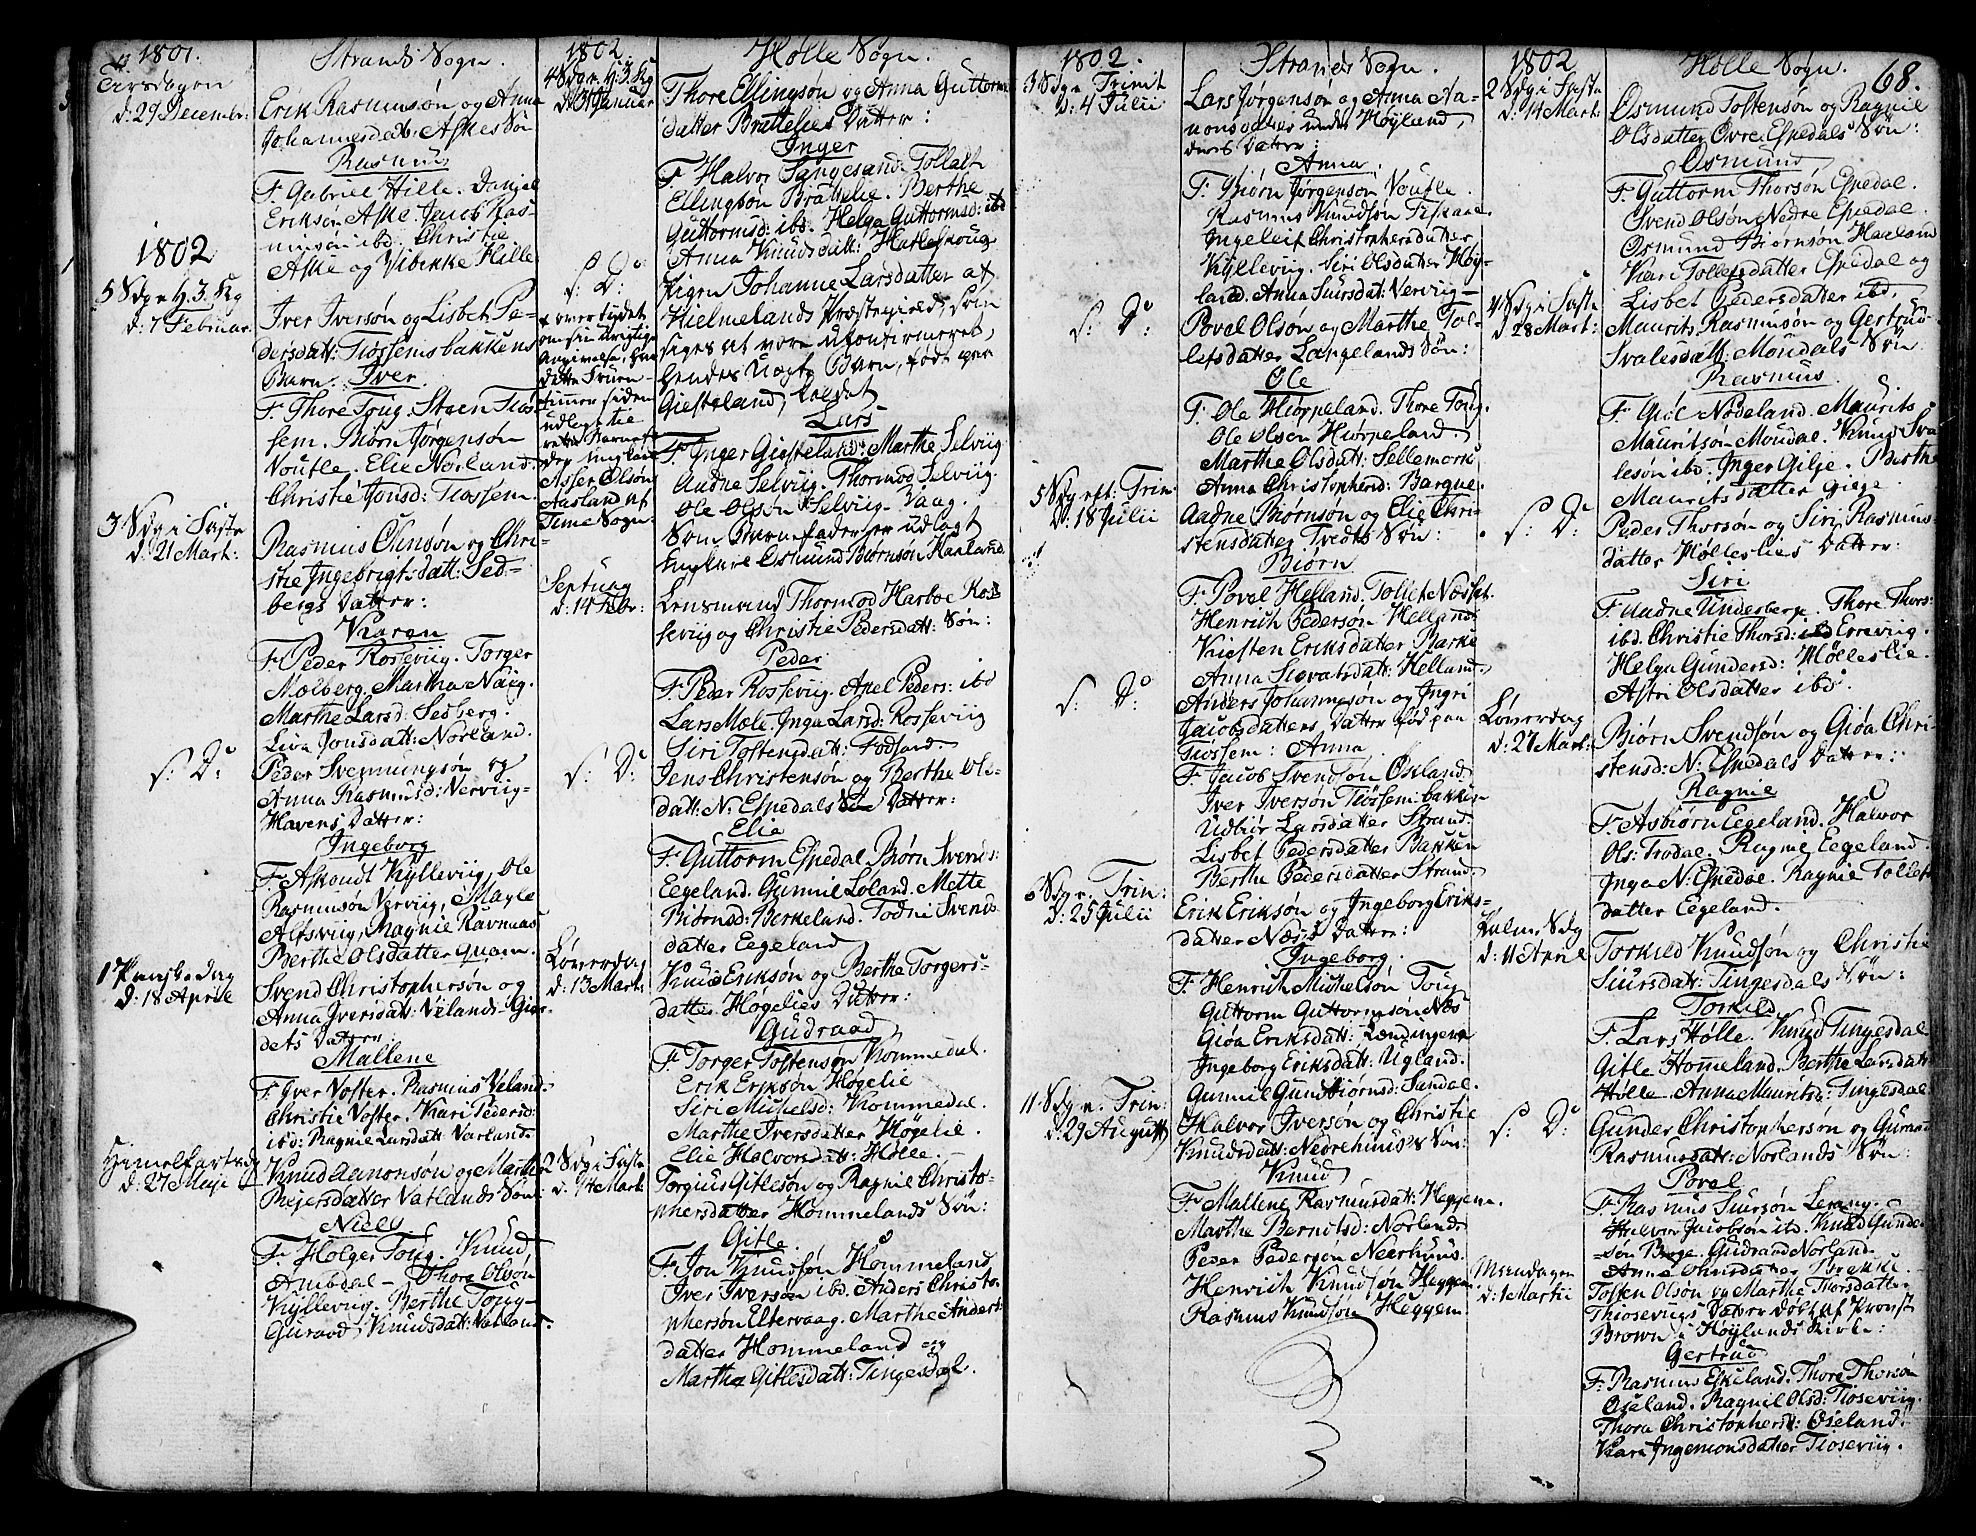 1801.
Strands Sogn.
d: 29 Decembr:
Erik Rasmusøn og Anna
Johannesdatt: Askes Søn
Rasmus
F. Gabriel Hille. Daniel
Eriksøn Aske. Jacob Ras-
musøn ibd. Christie
Aske og Vibekke Hille
1802
5 Sdg e. H. 3. Kg
d: 7 Februar.
Iver Iversøn og Lisbet Pe-
dersdatt: Tiøssems bakkens
Barn. Iver.
F. Thore Toug. Steen Tiøs-
sem. Biørn Jørgensøn
Voutle. Elie Norland.
Christie Jonsd: Tiøssem.
3 Sdg i Faste
d. 21 Mart:
Rasmus Olensøn og Chri-
stie Ingebrigtsdatt: Sed-
bergs Datter:
Karen
F. Peder Rosseviig. Torger
Molberg. Martha Naig.
Marthe Larsd: Sedberg.
Liva Jonsdatt: Norland.
s: D:
Peder Svennungsøn og
Anna Rasmusd: Nerviig-
Havens Datter:
Ingeborg
F. Askoudt Kylleviig, Ole
Rasmusøn Nerviig, Magle
Alfsviig, Ragnie Ravnaas
Berthe Olsdatter Quam.
1 Paaskedag
d: 18 Aprile
Svend Christophersøn og
Anna Iversdatt: Velands-Gier-
dets Datter:
Mallene
F. Iver Voster. Rasmus Veland.
Christie Voster. Kari Pedersd:
ibd: Ragnie Larsdatt: Varland.
Himelfartsdg
d. 27 Maji
Knud Aanonsøn og Marthe
Reiersdatter Vatlands Søn:
Niels
F. Holger Toug. Knud
Ambdal - Thore Olsøn
Kyllevig. Berthe Toug-
Guraad Knudsdatt: Vatland.
1802.
Hølle Sogn.
4 Sdg e. H. 3. Kg
d. 31 Januar
Thore Ellingsøn og Anna Guttorms
datter Brattelies Datter:
Inger
F. Halvor Sangesand. Tollalt
Ellingsøn Brattelie. Berthe
Guttormsd: ibd. Helga Guttormsd: ibd
Anna Knudsdatt: Hatleskoug
s: D:
Pigen Johanne Larsdatter af
Hielmelands Præstegield, som
siges at være uconfirmeret,
hendes Uægte Barn, født paa
Giesteland, kaldet
Lars
F. Inger Giesteland. Marthe Selviig
Aadne Selviig. Thormod Selviig
Ole Olsøn Selviig-Vaag.
Som Barnefader er udlagt
Ungkarl Osmund Biørnsøn Haaland.
overtydet
om sin urigtige
Angivelse, har
dette Fruen-
timer siden
udlagt til
rette Barnefa-
der Ungkarl
Asser Olsøn
Aasland af
Time Sogn:
Septuag
d: 14 Febr:
Lensmand Thormod Harboe Ros-
seviig og Christie Pedersdatt: Søn:
Peder
F. Peder Rosseviig. Apel Peders: ibd
Lars Mæle. Inga Larsd: Rosseviig
Siri Tostensdatt: Fodland.
s: D:
Jens Christensøn og Berthe Ols-
datt: N. Espedals Datter:
Elie
F. Guttorm Espedal. Biørn Svends:
Eegeland. Gunnil Løland. Mette
Biørnsd: Berkeland. Todni Svends-
datter Eegeland
Løverdag
d: 13 Mart:
Knud Eriksøn og Berthe Torgers-
datter Høgelies Datter:
Gudraad
F. Torger Tostensøn Kommedal.
Erik Eriksøn Høgelie
Siri Michelsd: Kommedal.
Marthe Iversdatter Høgelie.
Elie Halvorsdatt: Hølle.
2 Sdg i Faste
d. 14 Mart:
Torgius Gitlesøn og Ragnil Christo-
phersdatter Hommelands Søn:
Gitle
F. Jon Knudsøn Hommeland
Iver Iversøn ibd. Anders Christo-
phersøn Eltervaag. Marthe Anders-
datter Hommeland og
Marthe Gitlesdatt: Tingesdal.
1802.
Strands Sogn.
3 Sdg e. Trinit
d: 4 Julii
Lars Jørgensøn og Anna Aa-
nonsdatter under Høyland,
deres Datter:
Anna
F. Biørn Jørgensøn Voutle.
Rasmus Knudsøn Fiskaae.
Ingeleif Christophersdatter
Kylleviig. Siri Olsdatter Høy-
land. Anna Siursdat: Nerviig-
s: D:
Povel Olsøn og Marthe Tol-
lefsdatter Langelands Søn:
Ole
F. Ole Hiørpeland. Thore Toug.
Ole Olsen Hiørpeland.
Marthe Olsdatt: Sellemork
Anna Christophersd: Barque.
5 Sdg eft: Trin:
D: 18 Julii
Aadne Biørnsøn og Elie Chri-
stensdatter Tvedts Søn:
Biørn
F. Povel Helland. Tollef Næsset.
Henrich Pedersøn Helland
Kirsten Eriksdatter Barke
Anna Sievatsdatt: Helland.
s: D:
Anders Johannesøn og Ingri
Jacobsdatters Datter fød paa
Tiøssem: Anna.
F. Jacob Svendsøn Oseland
Iver Iversøn Tiøssembakken
Udbiør Larsdatter Strand.
Lisbet Pedersdatter Bakken
Berthe Pedersdatter Strand.
6 Sdg e. Trin:
d: 25 Julii
Erik Eriksøn og Ingeborg Eriks-
datter Næsses Datter:
Ingeborg.
F. Henrich Michelsøn Toug
Guttorm Guttormsøn Næs
Giøa Eriksdatt: Lændingene
Ingeborg Eriksdatt: Ugland.
Gunnil Gundbiørnsd: Sandal.
11 Sdg e. Trin:
d: 29 Augusti
Halvor Iversøn og Christie
Knudsdatt: Nedrehuus's Søn:
Knud
F. Mallene Rasmusdatt: Heggem.
Marthe Berntsd: Norland
Peder Pedersen Neerhuus.
Henrich Knudsøn Heggem
Rasmus Knudsøn Heggem.
1802
Hølle Sogn.
68.
2 Sdg i Faste
d: 14 Mart:
Osmund Tostensøn og Ragnil
Olsdatter Øvre Espedals Søn:
Osmund
F. Guttorm Thorsøn Espedal.
Svend Olsøn Nedre Espedal
Osmund Biørnsøn Haaland
Kari Tollefsdatter Espedal og
Lisbet Pedersdatter ibd.
4 Sdg i Faste
d 28 Mart:
Maurits Rasmusøn og Gertrud
Svalesdatt: Moudals Søn
Rasmus
F. Giøl Nødeland. Maurits
Mauritsøn Moudal. Knud Sva-
lesøn ibd. Inger Gilje. Berthe
Mauritsdatter Giege.
s: D:
Peder Thorsøn og Siri Rasmus-
datter Hølleslies Datter:
Siri
F. Aadne Underberge. Thore Thors:
ibd. Christie Thorsd: Erreviig.
Helga Gundersd: Hølleslie.
Astri Olsdatter ibd.
Løverdag
d: 27 Mart:
Biørn Svendsøn og Giøa Chri-
stensd: N: Espedals Datter:
Ragnie
F. Asbiørn Eegeland. Halvor
Ols: Trodal. Ragnie Eegeland.
Inga N: Espedal. Ragnie Tollefs
datter Eegeland.
Palme Sdg
d: 11 Aprile
Torkild Knudsøn og Christie
Siursdatt: Tingesdals Søn:
Torkild
F. Lars Hølle. Knud Tingesdal
Gitle Hommeland. Berthe Larsdatt:
Hølle. Anna Mauritsd: Tingesdal
s: D:
Gunder Christophersøn og Guraad
Rasmusdatt: Norlands Søn:
Povel
F. Rasmus Siursøn Lerang.
Halvor Jacobsøn ibd. Knud Gunder-
søn Berge. Gudraad Norland-
Anna Olensdatter Brekke.
Mondagen
d: 1 Martii
Tosten Olsøn og Marthe Thorsdatter
Thioseviigs Datter døbt af Provst
Brown i Høylands Kirke:
Gertrud
F. Rasmus Eskeland. Thore Thorsøn
Oseland. Ragnil Olsd: Tioseviig.
Thora Christophersd: Oseland.
Kari Ingemonsdatter Tioseviig.